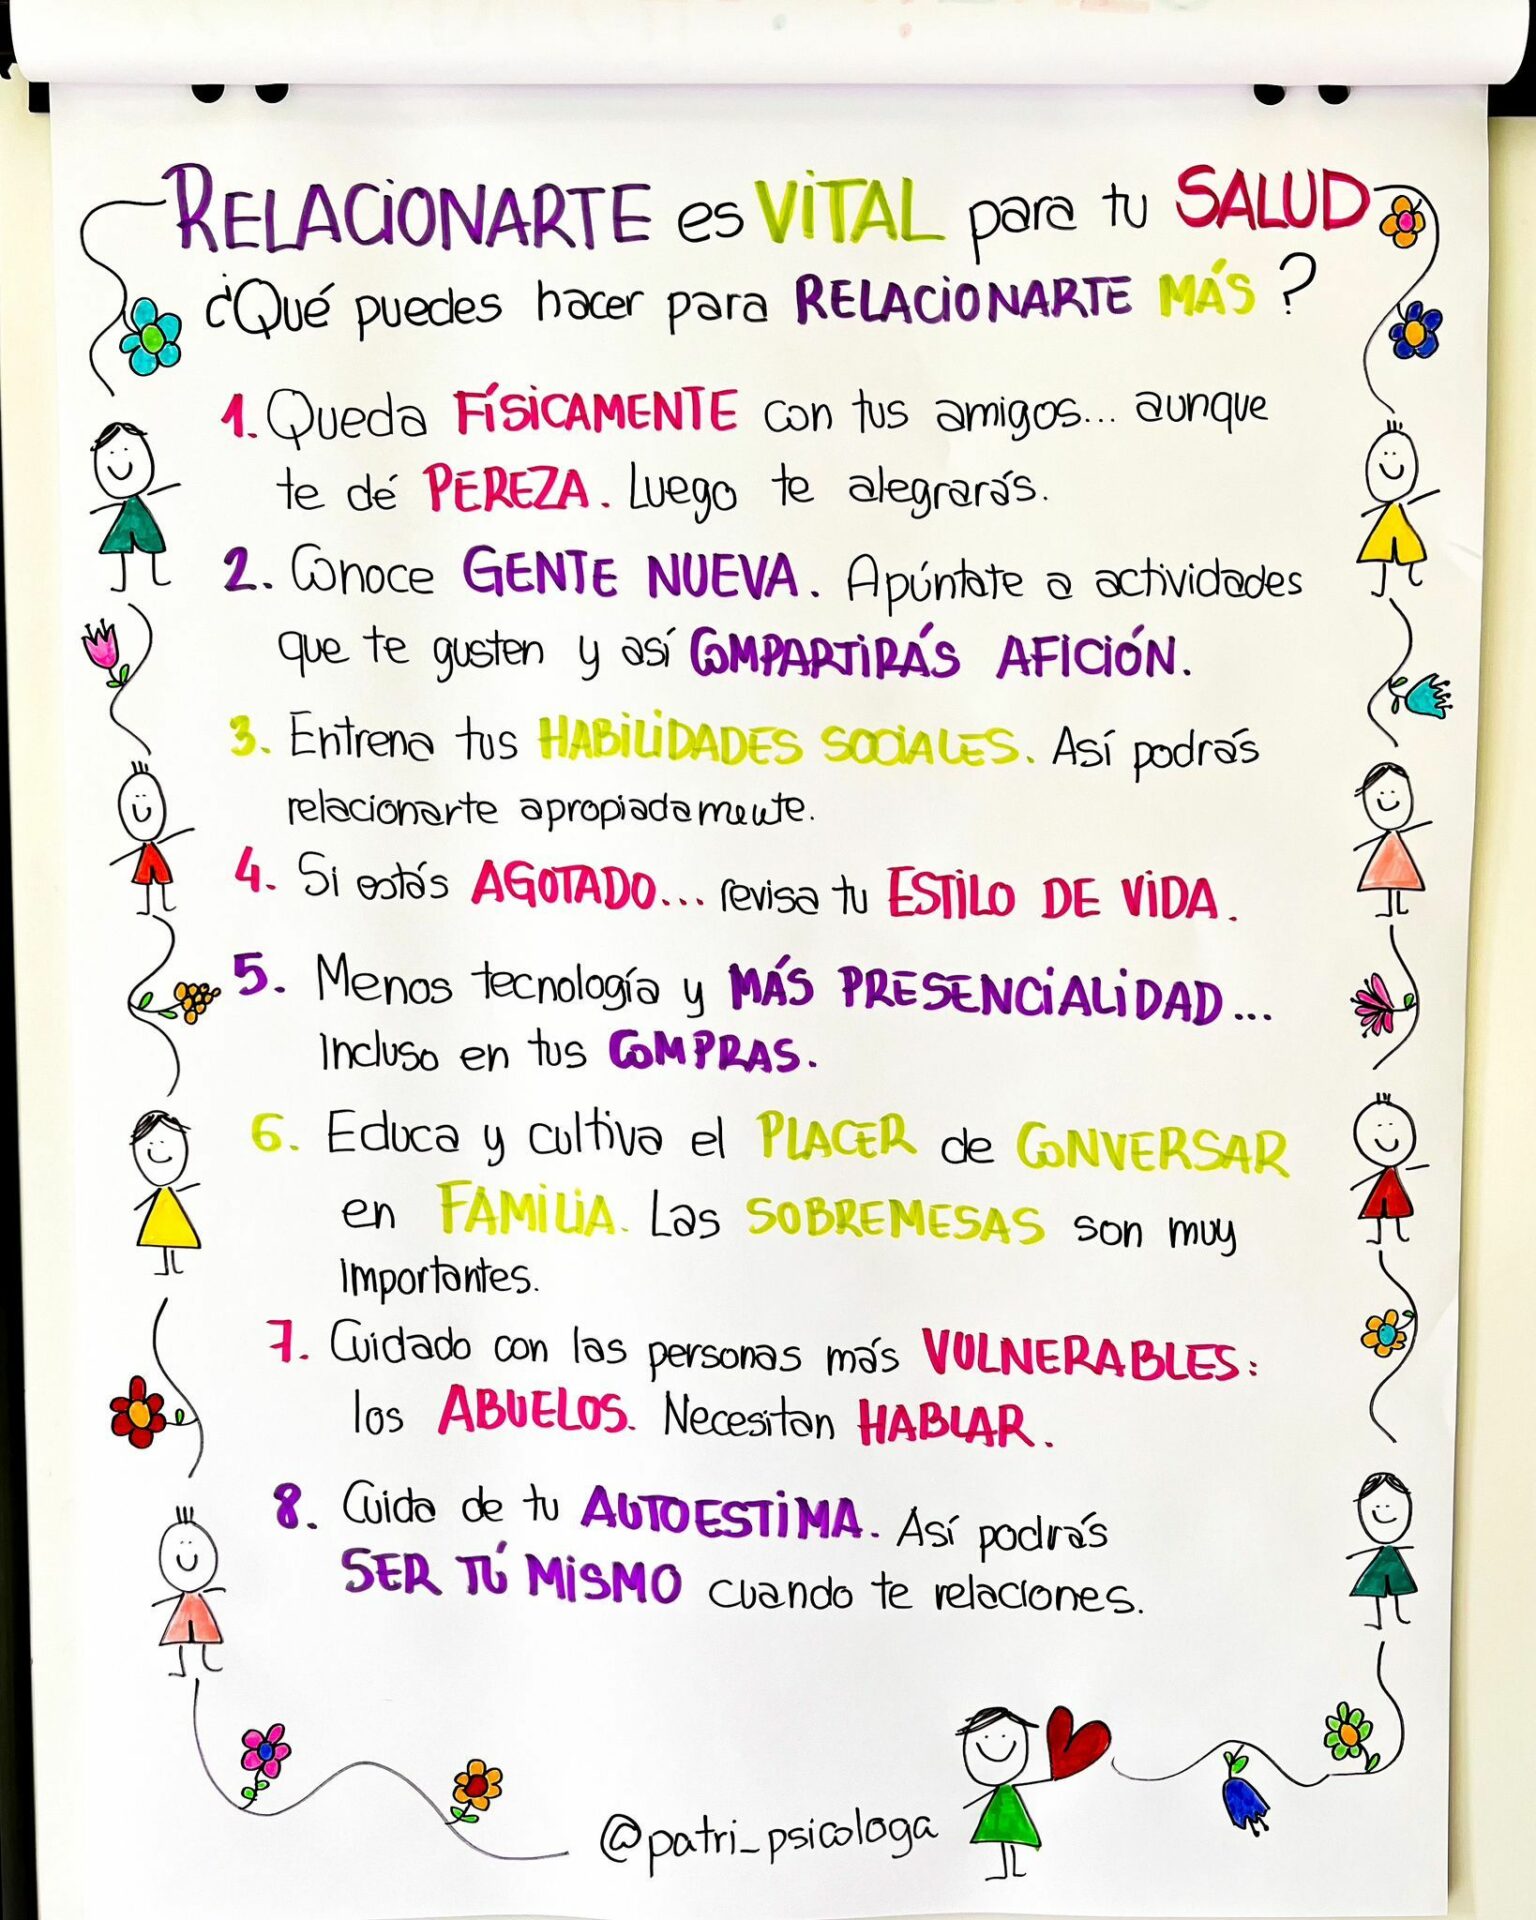 RELACIONARTE es VITAL para tu SALUD
¿Qué puedes hacer para RELACIONARTE MÁS?
1. Queda FÍSICAMENTE con tus amigos... aunque
te dé PEREZA. Luego te alegrarás.
2. Conoce GENTE NUEVA. Apúntate a actividades
que te gusten y así COMPARTIRÁS AFICIÓN.
3. Entrena tus HABILIDADES SOCIALES. Así podrás
relacionarte apropiadamente.
4. Si estás AGOTADO... revisa tu ESTILO DE VIDA.
5. Menos tecnología y MÁS PRESENCIALIDAD...
Incluso en tus COMPRAS.
6. Educa y cultiva el PLACER de CONVERSAR
en FAMILIA. Las SOBREMESAS son muy
importantes.
7. Cuidado con las personas más VULNERABLES:
los ABUELOS. Necesitan HABLAR.
8. Cuida de tu AUTOESTIMA. Así podrás
SER TÚ MISMO cuando te relaciones.
@patri_psicologa